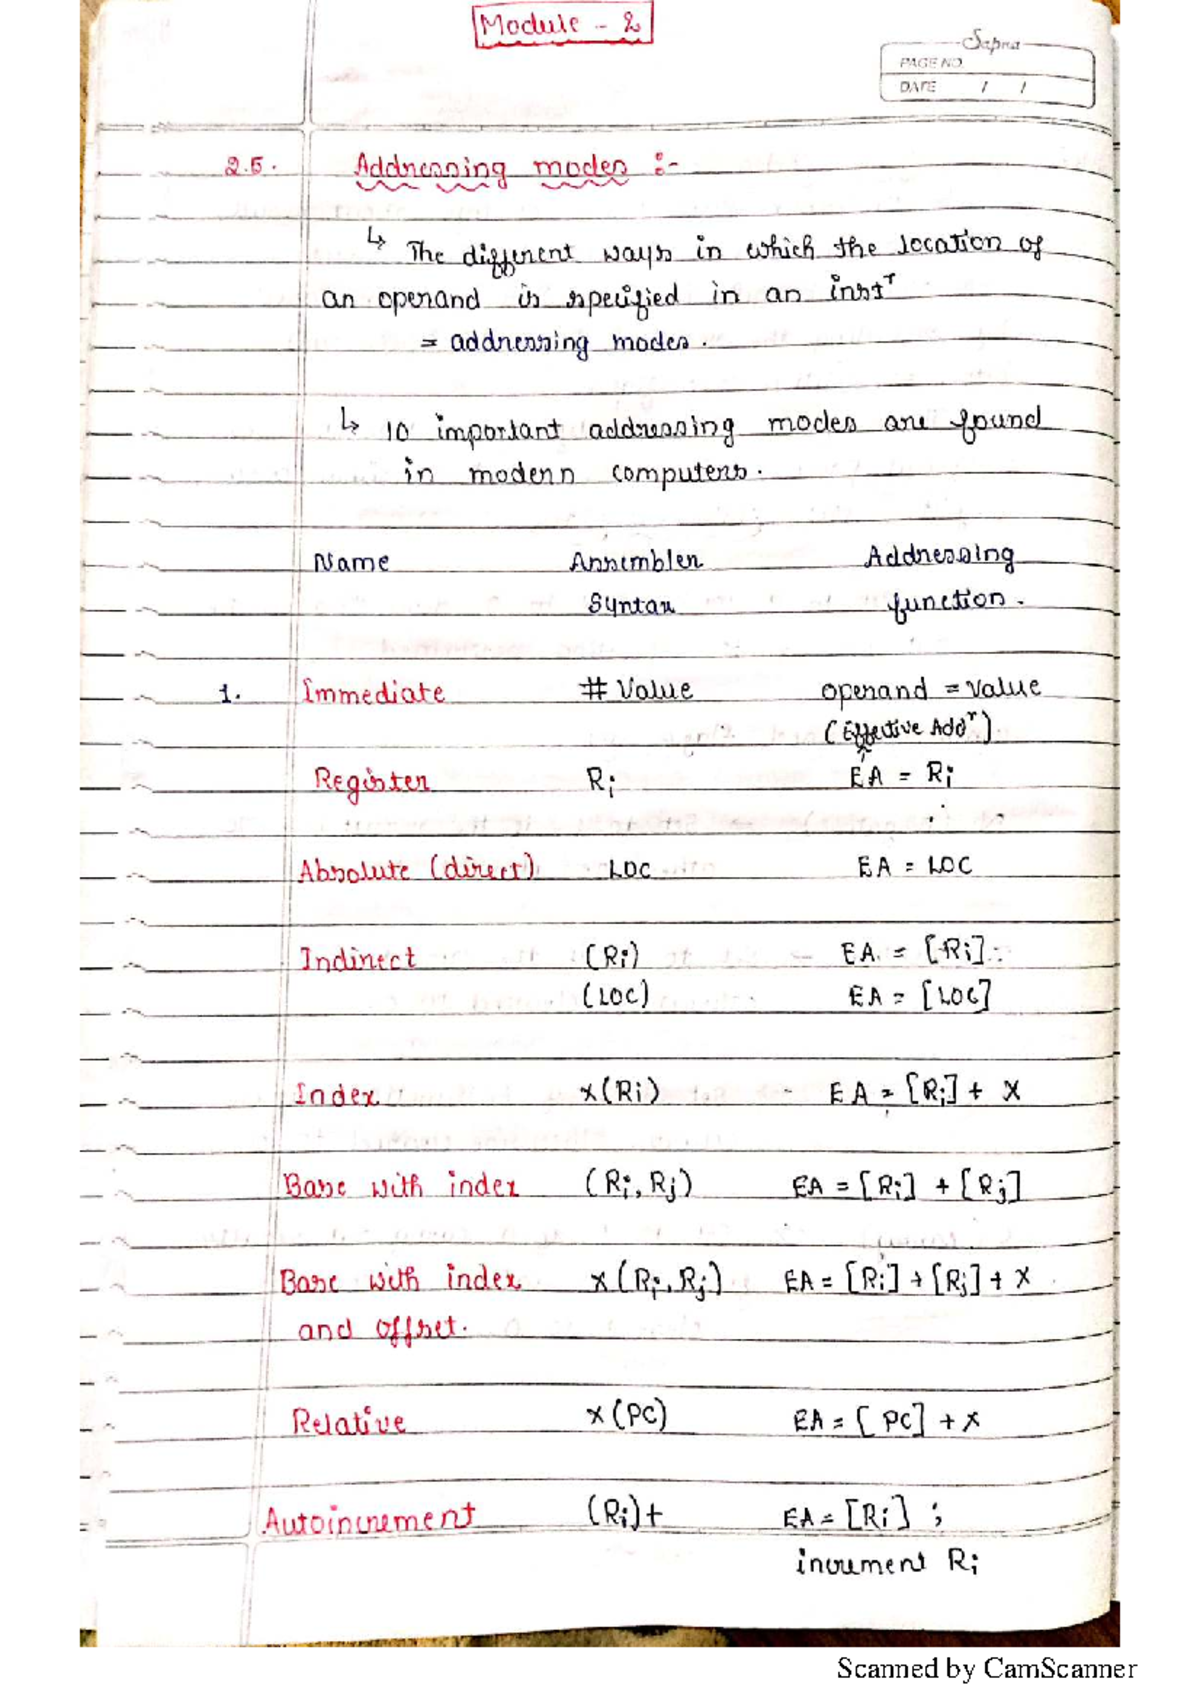 Module - 2
Sapna
PAGE NO.
DATE / /
2.5. Addressing modes :-
↳ The different ways in which the location of
an operand is specified in an instr
= addressing modes.
↳ 10 important addressing modes are found
in modern computers.
Name Assembler Addressing
Syntax function.
1. Immediate # Value operand = Value
(Effective Addr)
Register Ri EA = Ri
Absolute (direct) LOC EA = LOC
Indirect (Ri) EA = [Ri]
(LOC) EA = [LOC]
Index X(Ri) EA = [Ri] + X
Base with index (Ri, Rj) EA = [Ri] + [Rj]
Base with index X(Ri, Rj) EA = [Ri] + [Rj] + X
and offset.
Relative X(PC) EA = [PC] + X
Autoincrement (Ri)+ EA = [Ri] ;
increment Ri
Scanned by CamScanner